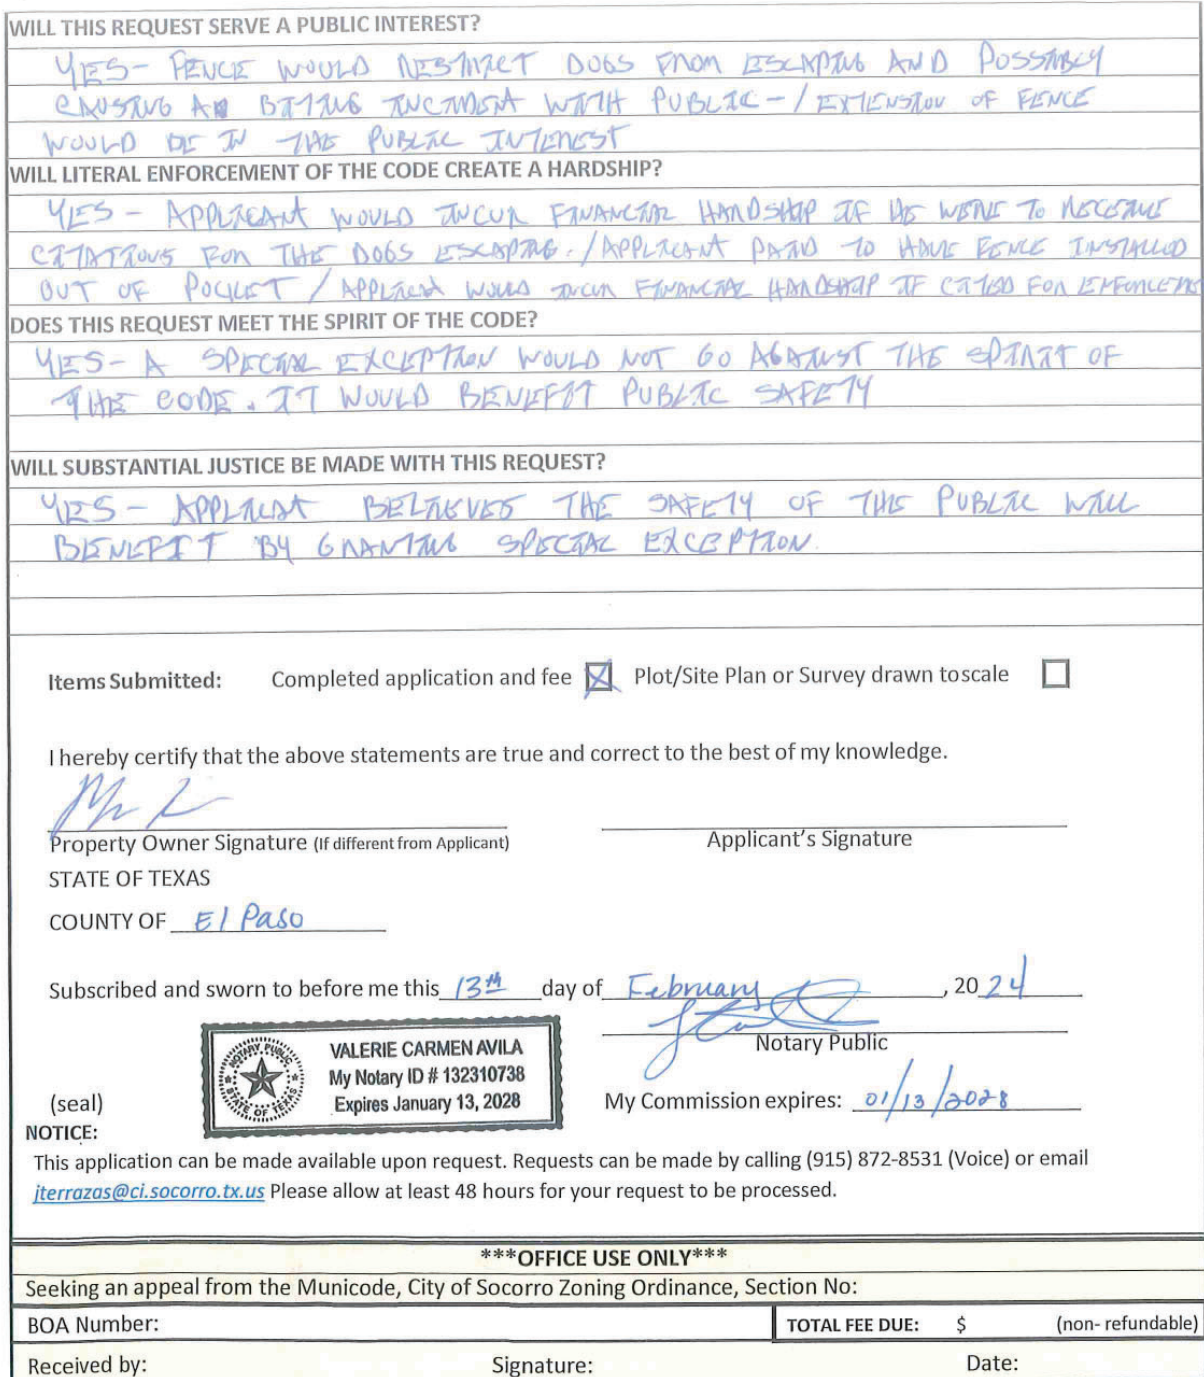 WILL THIS REQUEST SERVE A PUBLIC INTEREST?
YES- FENCE WOULD RESTRICT DOGS FROM ESCAPING AND POSSIBLY
CAUSING A BITING INCIDENT WITH PUBLIC-/EXTENSION OF FENCE
WOULD BE IN THE PUBLIC INTEREST
WILL LITERAL ENFORCEMENT OF THE CODE CREATE A HARDSHIP?
YES - APPLICANT WOULD INCUR FINANCIAL HARDSHIP IF HE WERE TO RECEIVE
CITATIONS FOR THE DOGS ESCAPING./APPLICANT PAID TO HAVE FENCE INSTALLED
OUT OF POCKET / APPLICANT WOULD INCUR FINANCIAL HARDSHIP IF CITED FOR
DOES THIS REQUEST MEET THE SPIRIT OF THE CODE?
YES- A SPECIAL EXCEPTION WOULD NOT GO AGAINST THE SPIRIT OF
THE CODE. IT WOULD BENEFIT PUBLIC SAFETY
WILL SUBSTANTIAL JUSTICE BE MADE WITH THIS REQUEST?
YES- APPLICANT BELIEVES THE SAFETY OF THE PUBLIC WILL
BENEFIT BY GRANTING SPECIAL EXCEPTION.
Items Submitted: Completed application and fee Plot/Site Plan or Survey drawn toscale
I hereby certify that the above statements are true and correct to the best of my knowledge.
Property Owner Signature (If different from Applicant) Applicant's Signature
STATE OF TEXAS
COUNTY OF El Paso
Subscribed and sworn to before me this 13th day of February, 2024
Notary Public
NOTARY PUBLIC
STATE OF TEXAS
VALERIE CARMEN AVILA
My Notary ID # 132310738
Expires January 13, 2028
(seal) My Commission expires: 01/13/2028
NOTICE:
This application can be made available upon request. Requests can be made by calling (915) 872-8531 (Voice) or email
jterrazas@ci.socorro.tx.us Please allow at least 48 hours for your request to be processed.
***OFFICE USE ONLY***
Seeking an appeal from the Municode, City of Socorro Zoning Ordinance, Section No:
BOA Number: TOTAL FEE DUE: $ (non- refundable)
Received by: Signature: Date: